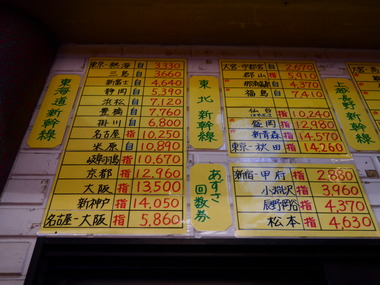 東海道新幹線
東京-熱海 自 3330
三島 自 3660
新富士 自 4,640
静岡 自 5,390
浜松 自 7,120
豊橋 自 7,760
掛川 自 6,800
名古屋 指 10,250
米原 自 10,890
岐阜羽島 指 10,670
京都 指 12,960
大阪 指 13,500
新神戸 指 14,050
名古屋-大阪 指 5,860
東北新幹線
大宮-宇都宮 自
郡山 指 5,910
自 4,370
福島 指 7,410
仙台 指 10,240
盛岡 指 12,980
新青森 指 14,570
東京-秋田 指 14,260
あずさ回数券
新宿-甲府 指 2,880
小淵沢 指 3,960
辰野岡谷 指 4,370
松本 指 4,630
長野新幹線